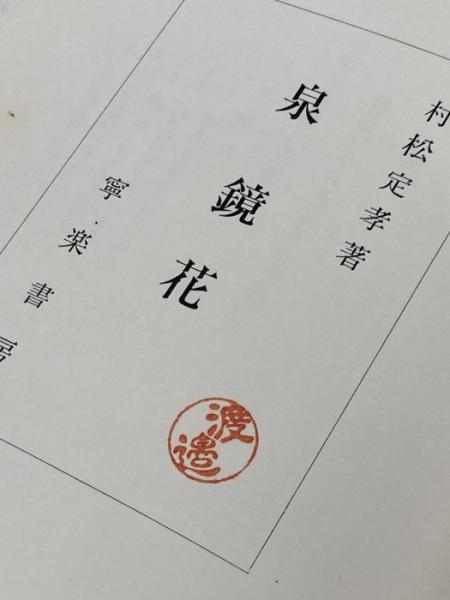 村松定孝著
泉鏡花
寧楽書房
渡邉